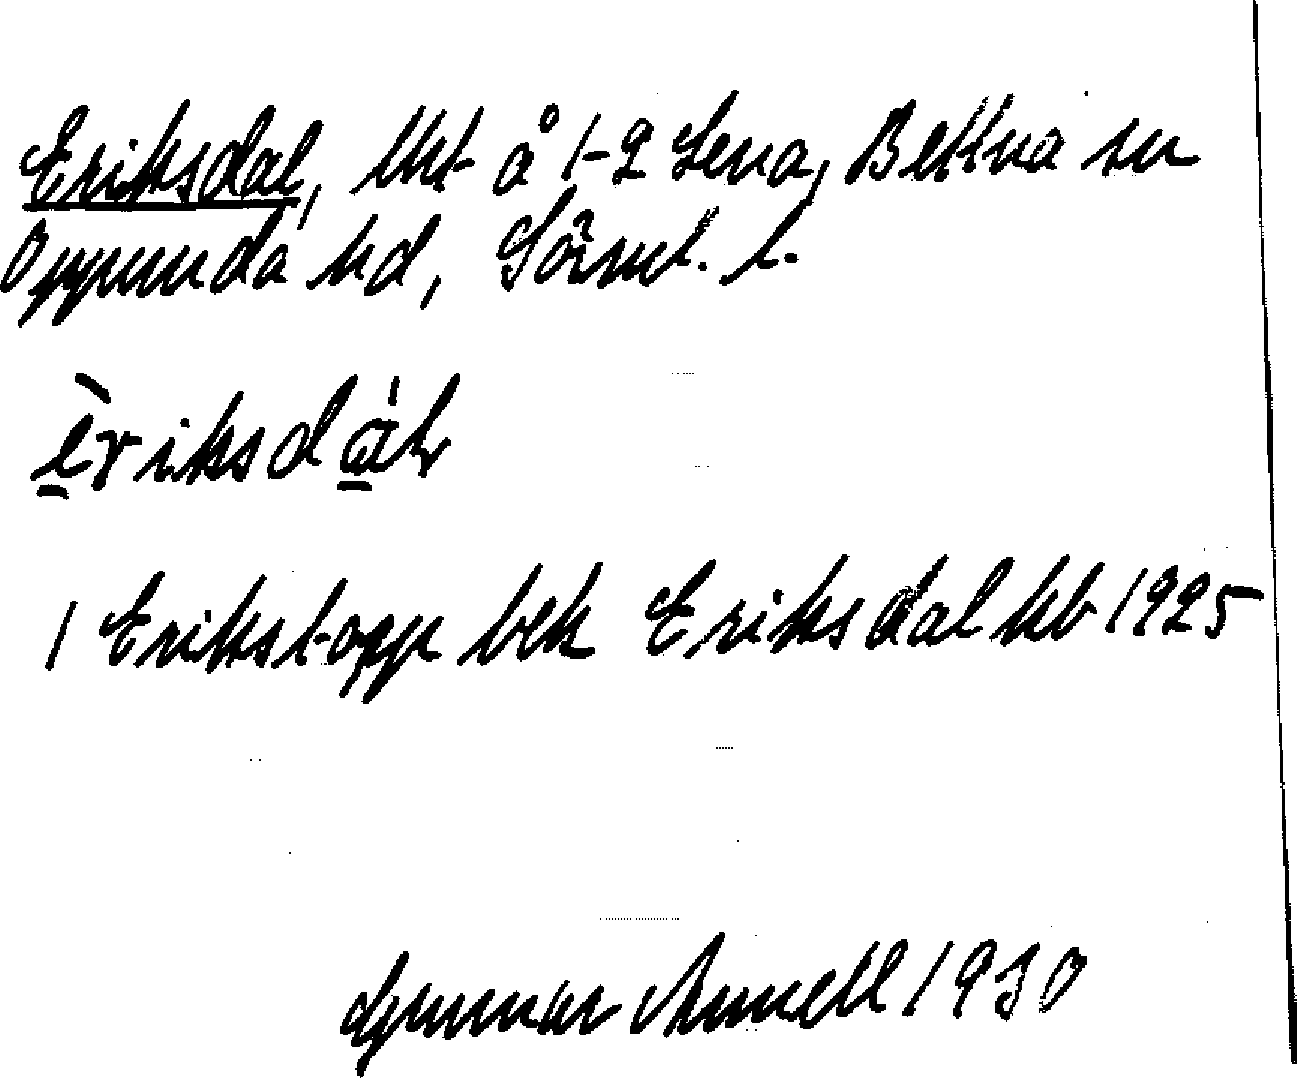 Eriksdal, lht å 1-2 Lena, Bettna sn
Oppunda hd, Sörml. l.
èriksdáł
1 Erikstorp bek Eriksdal kb 1925
Gunnar Annell 1930